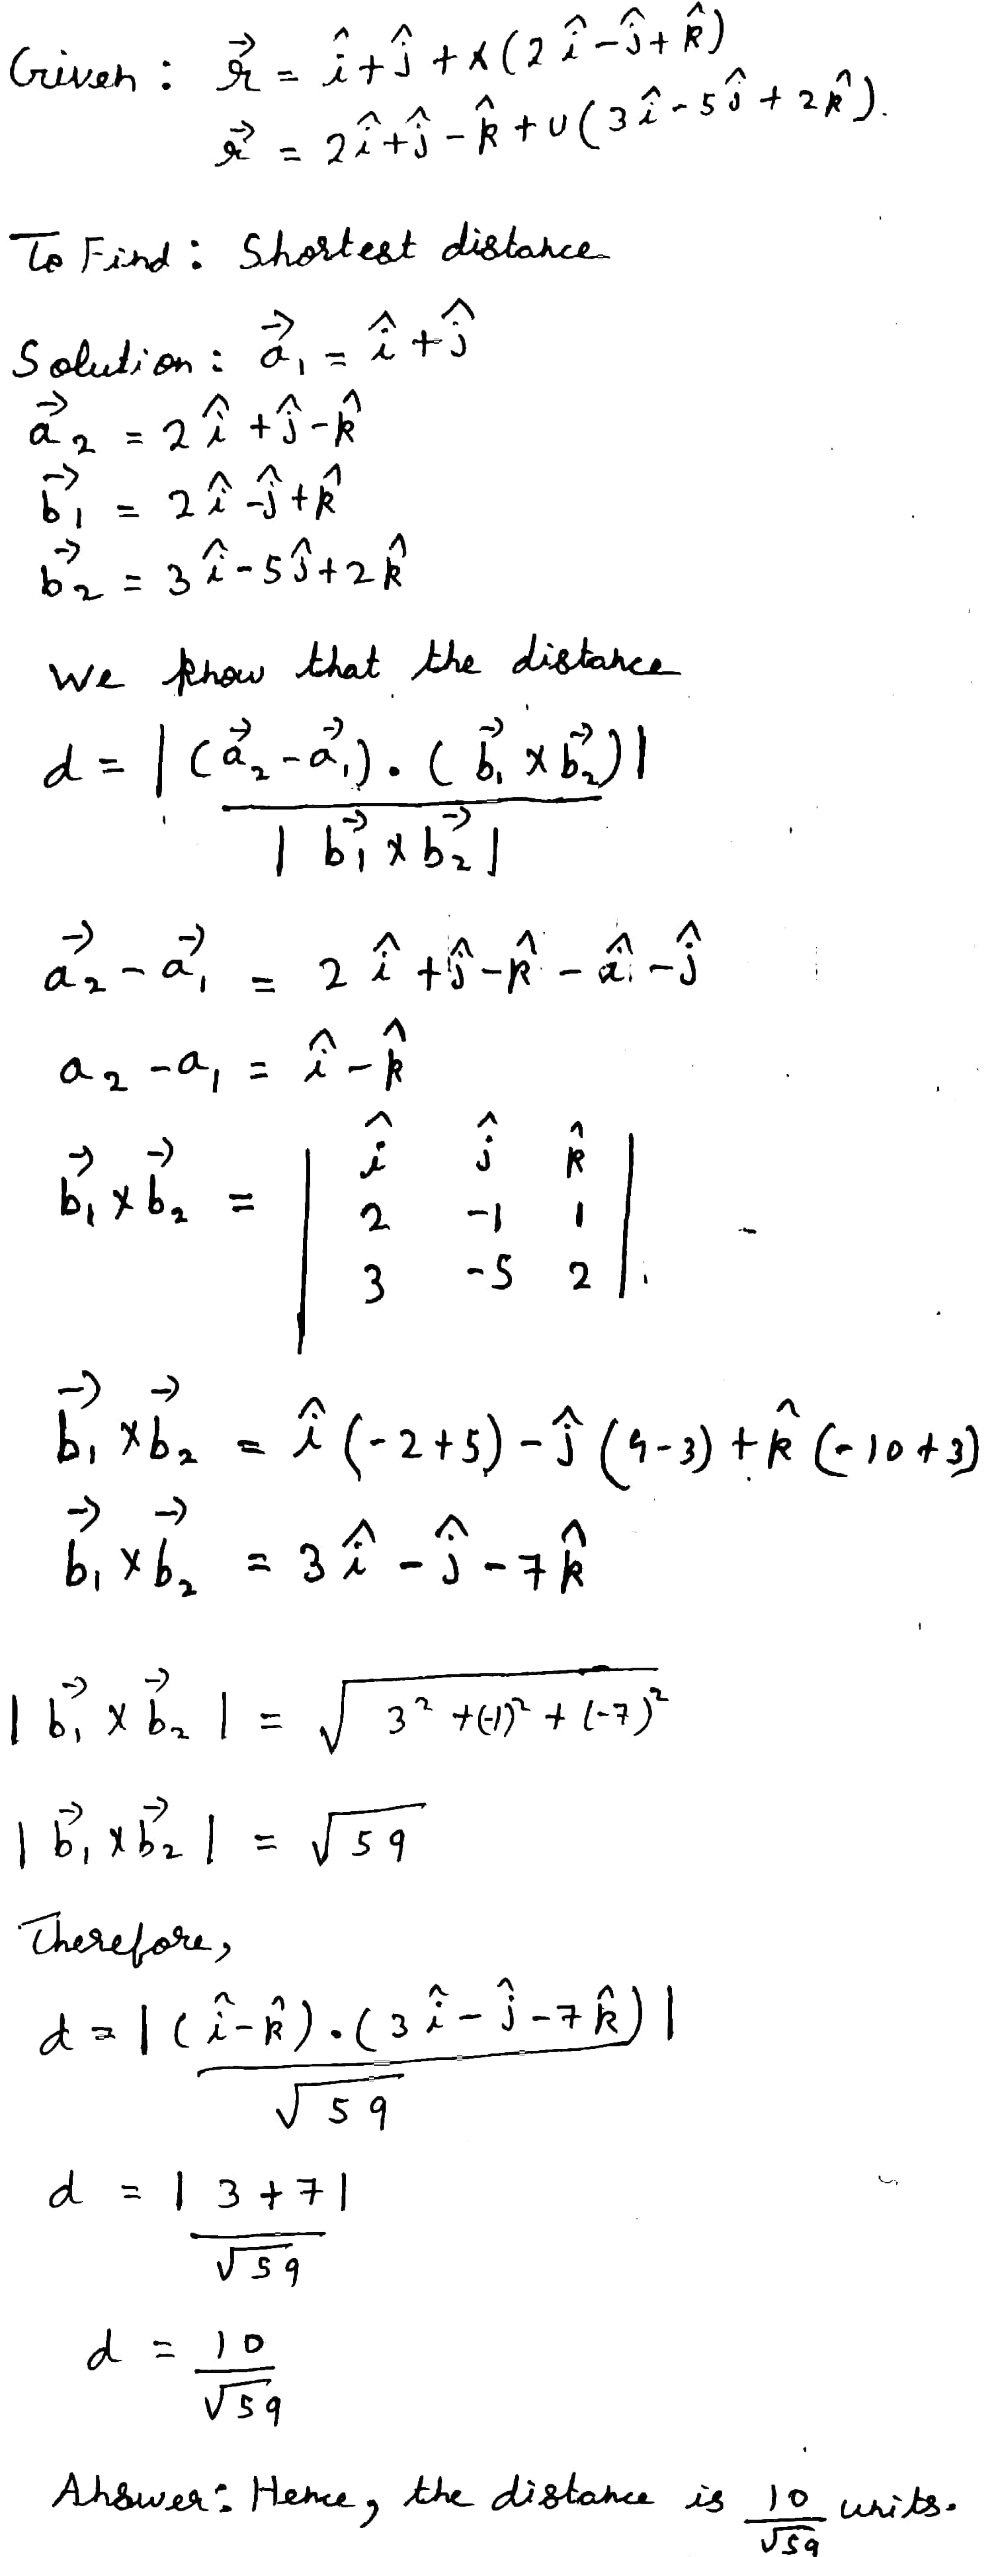 Given : r⃗ = î+ĵ + x(2î-ĵ+k̂)
r⃗ = 2î+ĵ-k̂+u(3î-5ĵ+2k̂).
To Find : Shortest distance
Solution : a⃗₁ = î+ĵ
a⃗₂ = 2î+ĵ-k̂
b⃗₁ = 2î-ĵ+k̂
b⃗₂ = 3î-5ĵ+2k̂
We know that the distance
d = |(a⃗₂-a⃗₁).(b⃗₁×b⃗₂)|
|b⃗₁×b⃗₂|
a⃗₂-a⃗₁ = 2î+ĵ-k̂-î-ĵ
a₂-a₁ = î-k̂
î ĵ k̂
b⃗₁×b⃗₂ = | 2 -1 1 |
3 -5 2
b⃗₁×b⃗₂ = î(-2+5)-ĵ(4-3)+k̂(-10+3)
b⃗₁×b⃗₂ = 3î-ĵ-7k̂
|b⃗₁×b⃗₂| = √3²+(-1)²+(-7)²
|b⃗₁×b⃗₂| = √59
Therefore,
d = |(î-k̂).(3î-ĵ-7k̂)|
√59
d = |3+7|
√59
d = 10
√59
Answer: Hence, the distance is 10/√59 units.